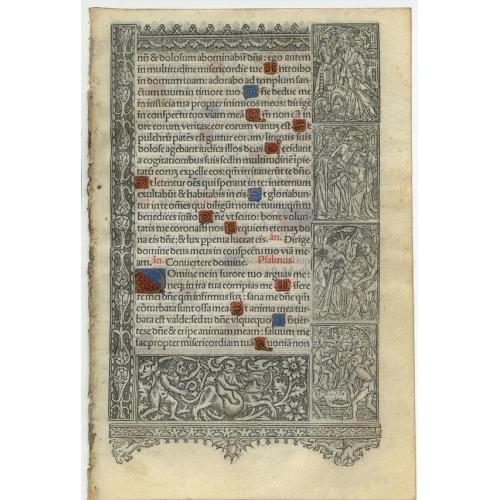 nũ & dolosum abominabit̃ dñs: ego autem
in multitudine misericordie tue Introibo
in domum tuam: adorabo ad templum san
ctum tuum in timore tuo Dñe deduc me
in iusticia tua propter inimicos meos: dirige
in conspectu tuo viam meã Qm̃ non est in
ore eorum veritas: cor eorum vanuʒ est Se
pulchrũ patẽs est guttur eorum: linguis suis
dolose agebant iudica illos deus Decidant
a cogitationibus suis sc̃dm multitudinẽ ipie
tatũ eoruʒ expelle eos: qm̃ irritauerũt te dñe
Et letentur oẽs qui sperant in te: ineternum
exultabunt & habitabis in eis Et gloriabun
tur in te omẽs qui diligũt nomẽ tuum: qm̃ tu
benedices iusto Dñe vt scuto: bone volun
tatis tue coronasti nos Requiem eternaʒ do
na eis dñe: & lux ppetua luceat eis. añ. Dirige
domine deus meus in conspectu tuo viã me
am. añ. Conuertere domine. Psalmus.
Domine ne in furore tuo arguas me:
neqʒ in ira tua corripias me Misere
re mei dñe qm̃ infirmus suʒ: sana me dñe qm̃
cõturbata sunt ossa mea Et anima mea tur
bata est valde: sed tu dñe vsquequo Cõuer
tere dñe & eripe animam meam: saluum me
fac propter misericordiam tuã Quoniã non